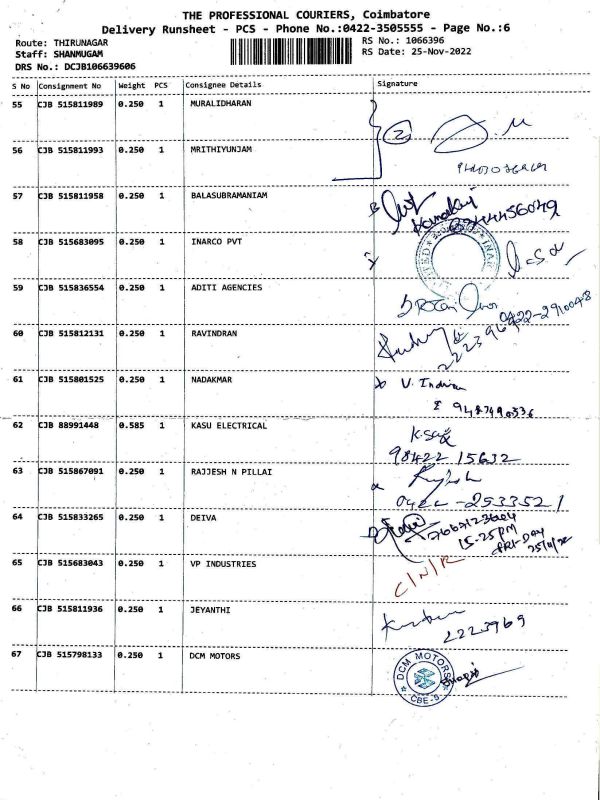 THE PROFESSIONAL COURIERS, Coimbatore
Delivery Runsheet - PCS - Phone No.:0422-3505555 - Page No.:6
Route: THIRUNAGAR
RS No.: 1066396
Staff: SHANMUGAM
RS Date: 25-Nov-2022
DRS No.: DCJB106639606
S No Consignment No Weight PCS Consignee Details Signature
55 CJB 515811989 0.250 1 MURALIDHARAN
2
56 CJB 515811993 0.250 1 MRITHIYUNJAM
57 CJB 515811958 0.250 1 BALASUBRAMANIAM
58 CJB 515683095 0.250 1 INARCO PVT
59 CJB 515836554 0.250 1 ADITI AGENCIES
0422-2910048
60 CJB 515812131 0.250 1 RAVINDRAN
61 CJB 515801525 0.250 1 NADAKMAR
V. Indira
62 CJB 88991448 0.585 1 KASU ELECTRICAL
98422 15632
63 CJB 515867091 0.250 1 RAJJESH N PILLAI
0422-2533521
64 CJB 515833265 0.250 1 DEIVA
15.25PM
FRI-DAY
25/11/22
65 CJB 515683043 0.250 1 VP INDUSTRIES
C/N/R
66 CJB 515811936 0.250 1 JEYANTHI
2223969
67 CJB 515798133 0.250 1 DCM MOTORS
DCM MOTORS
CBE-9